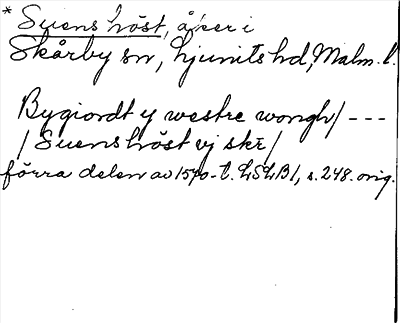 * Suens höst, åker i
Skårby sn, Ljunits hd, Malm. l.
Bygiordt y westre wongh/ ---
/ Suens höst vj skr̄ /
förra delen av 1570-t. LSLB1, s. 248. orig.